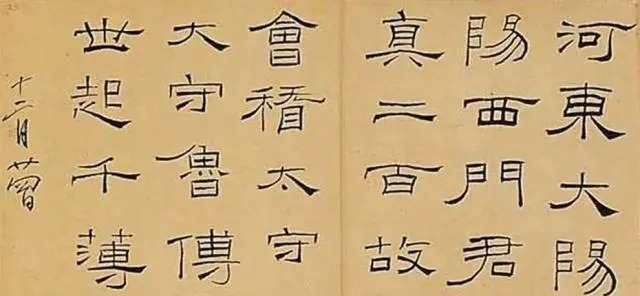 河東大陽
陽西門君
真二百故
會稽太守
大守魯傅
世起千薄
十二月